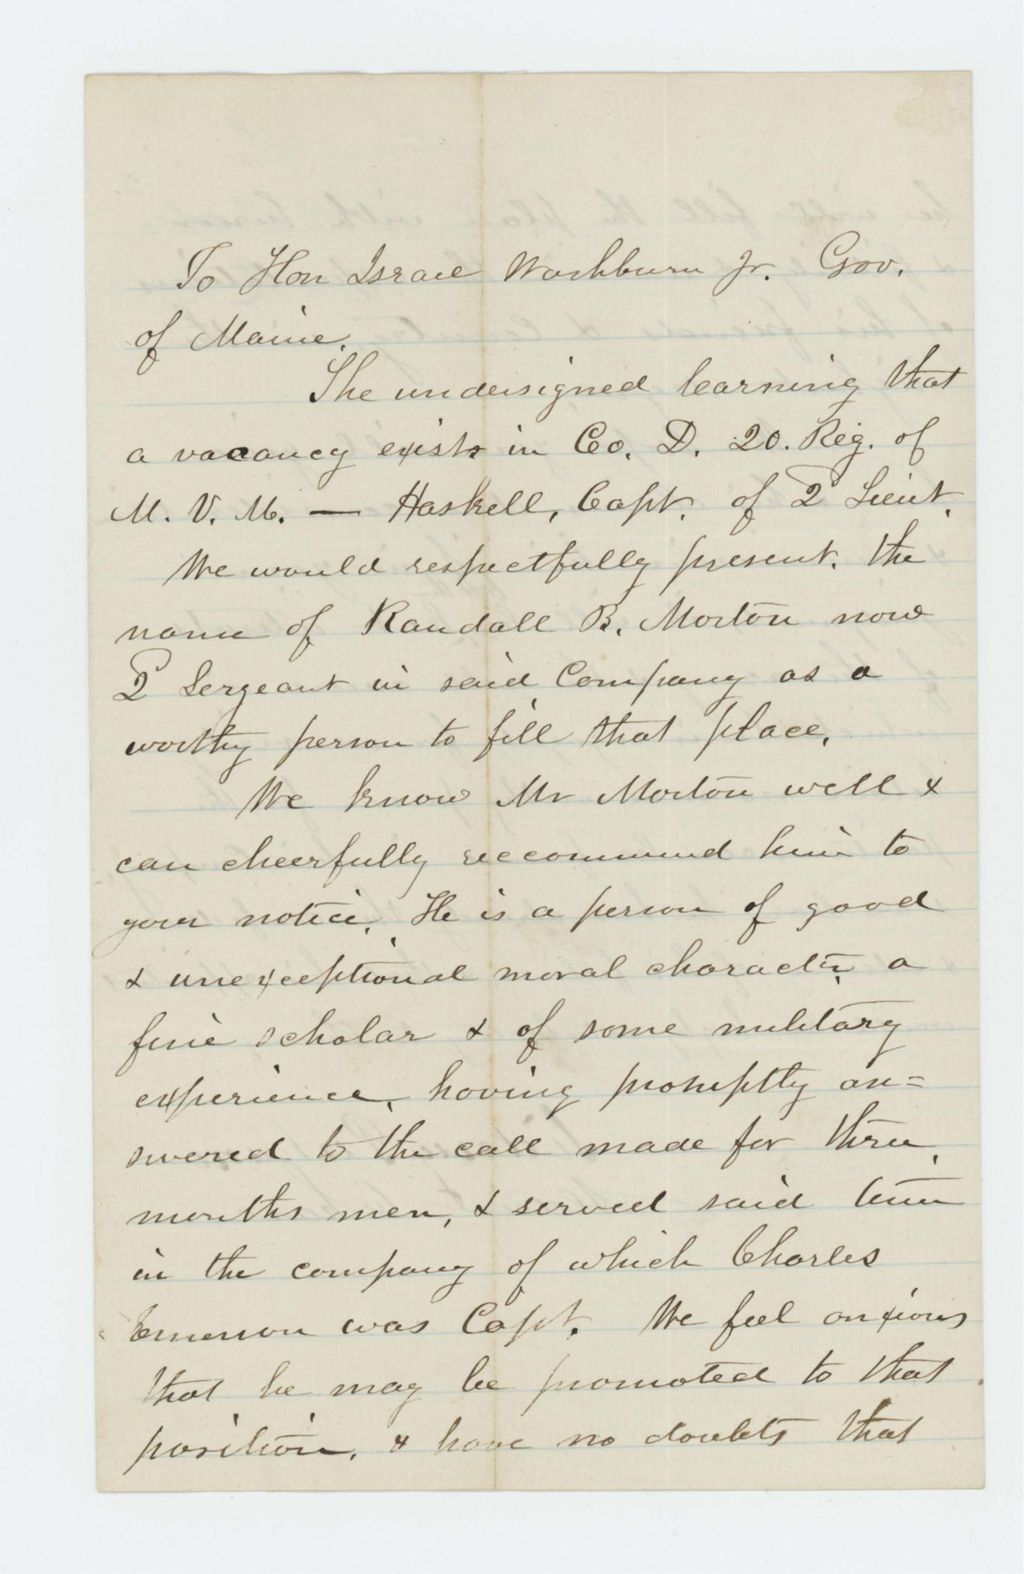 To Hon Israel Washburn Jr. Gov.
of Maine.
The undersigned learning that
a vacancy exists in Co. D. 20. Reg. of
M. V. M. — Haskell, Capt. of 2d Lieut.
We would respectfully present. the
name of Randall B. Morton now
2d Sergeant in said Company as a
worthy person to fill that place.
We know Mr Morton well &
can cheerfully reccommend him to
your notice. He is a person of good
& unexceptional moral character, a
fine scholar & of some military
experience, having promptly an=
swered to the call made for three
months men, & served said time
in the company of which Charles
Emerson was Capt. We feel anxious
that he may be promoted to that
position, & have no doubts that